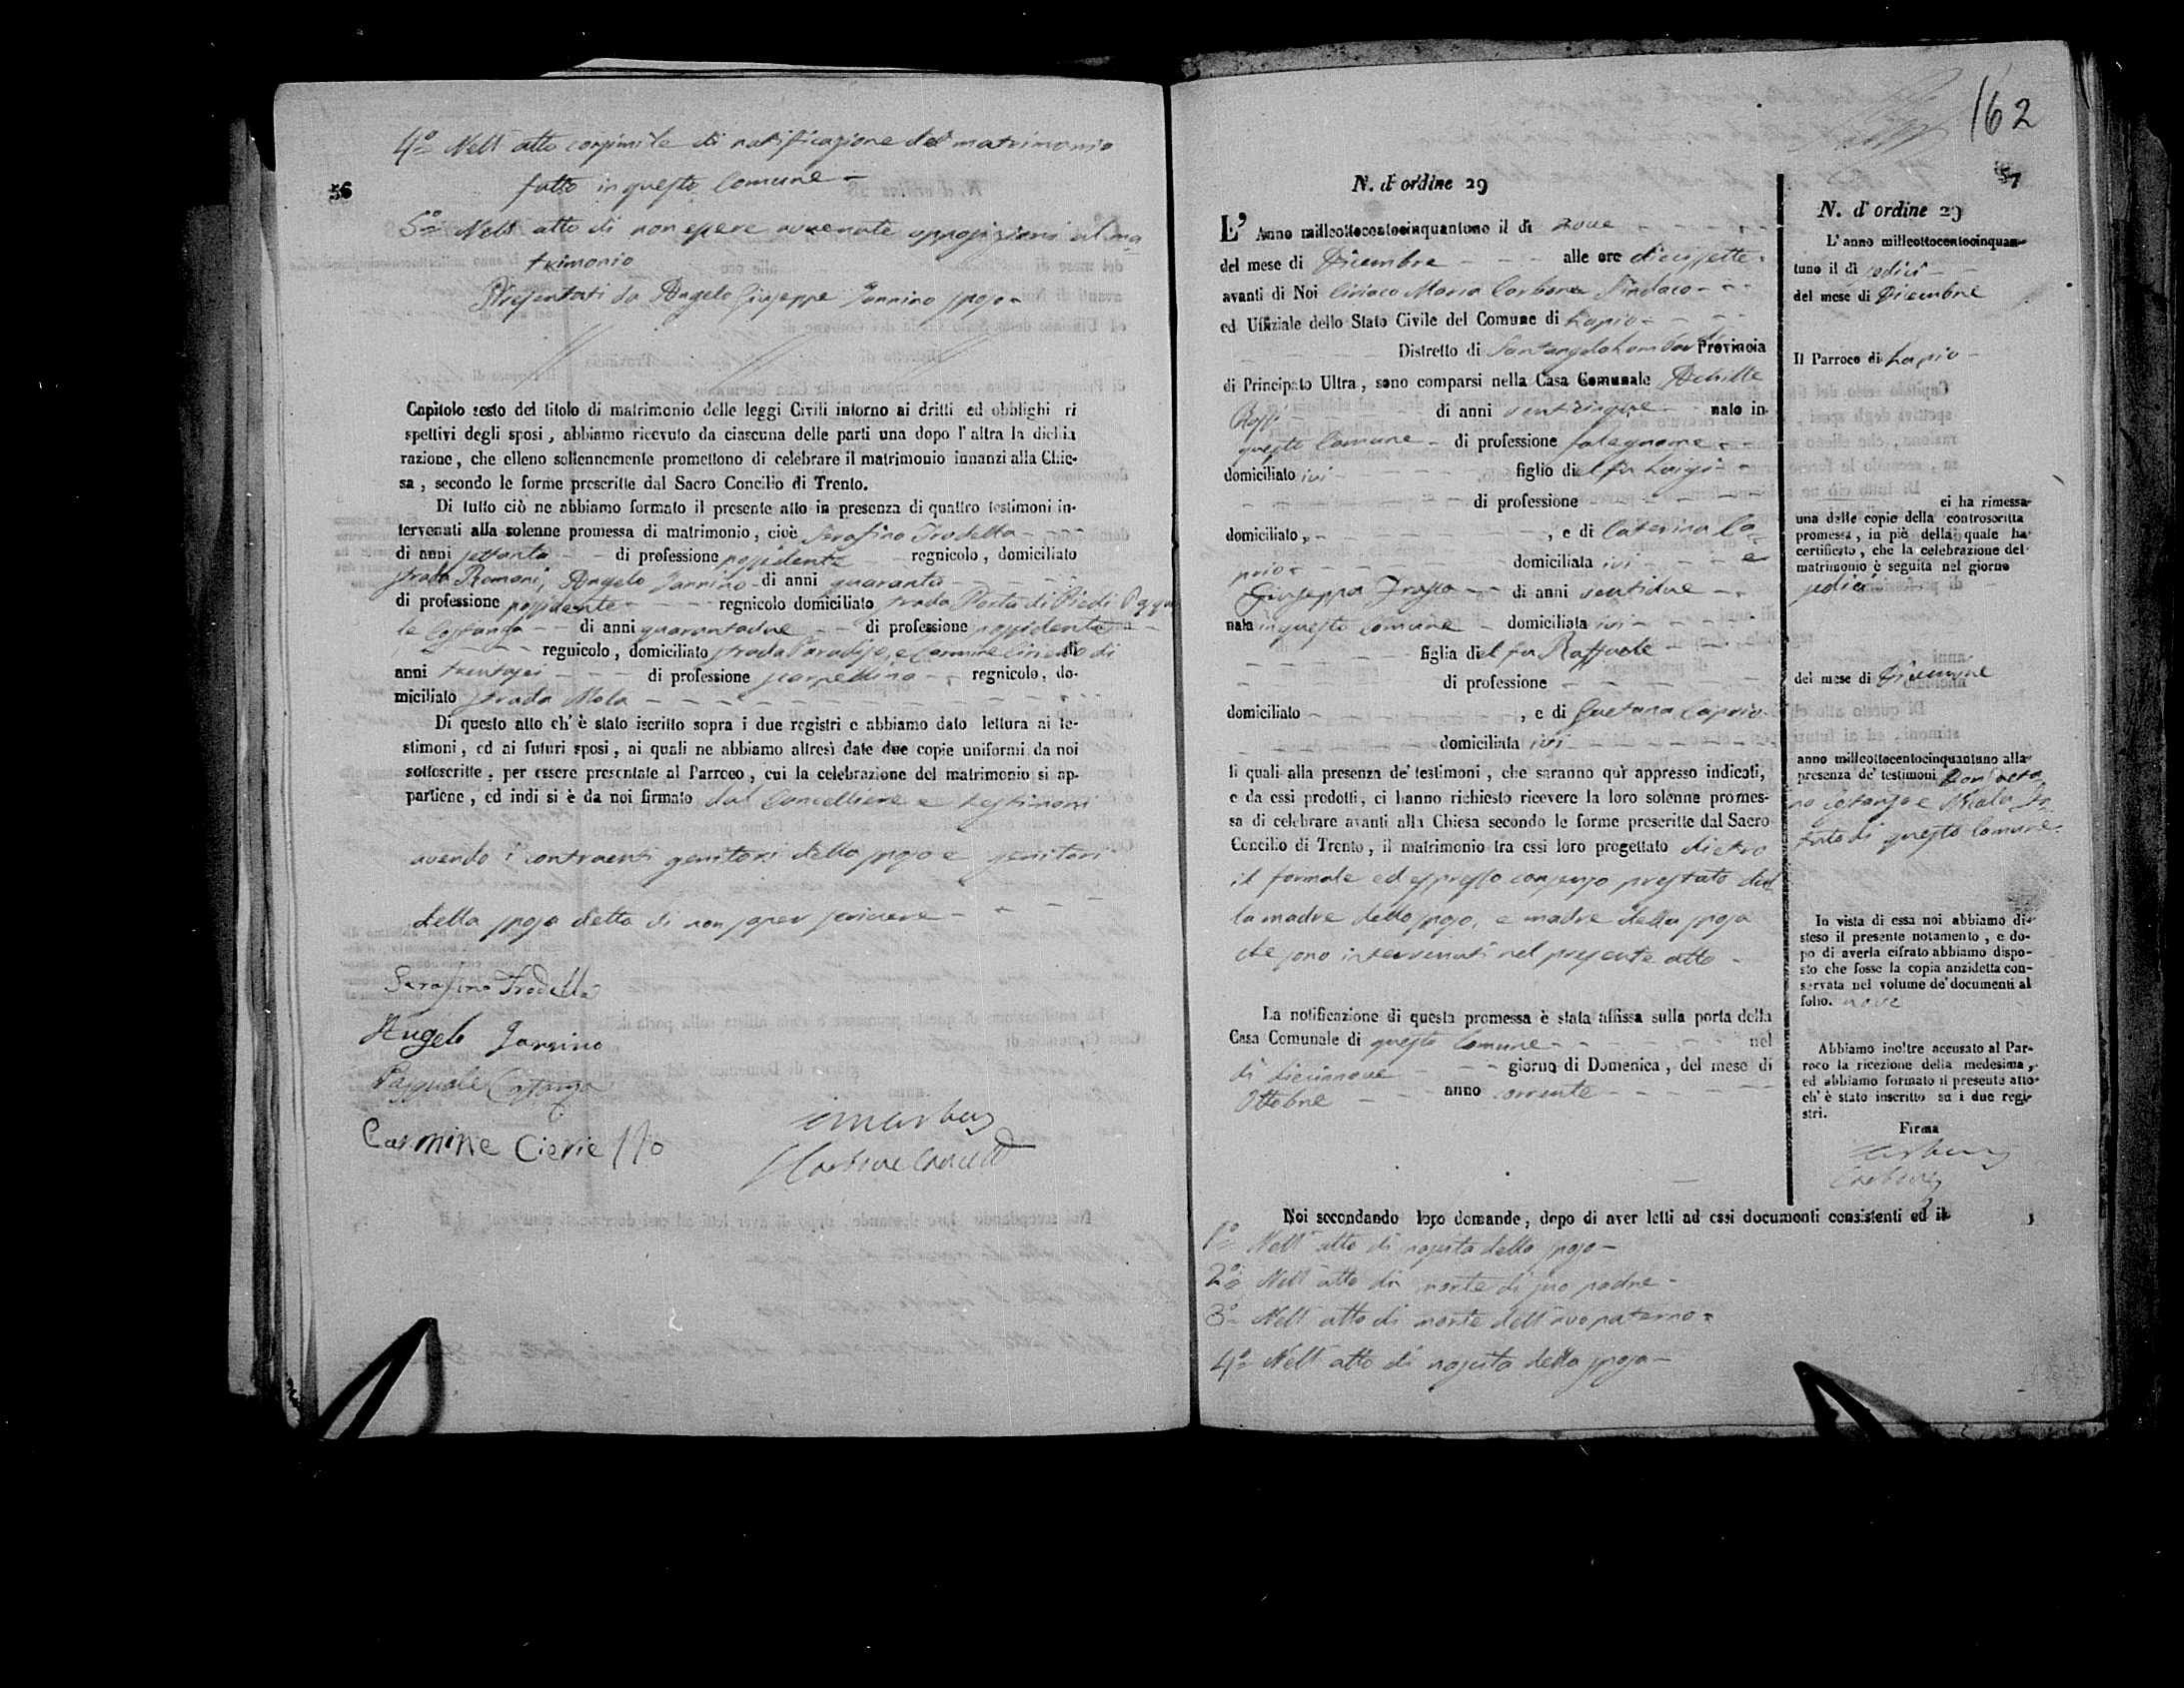 56
4º Nell' atto consimile di notificazione del matrimonio
fatto in questo Comune
5º Nell' atto di non essere avvenute opposizioni al ma
trimonio
Presentati da Angelo Giuseppe Iannino sposo
Capitolo sesto del titolo di matrimonio delle leggi Civili intorno ai dritti ed obblighi ri
spettivi degli sposi, abbiamo ricevuto da ciascuna delle parti una dopo l'altra la dichia
razione, che elleno sollennemente promettono di celebrare il matrimonio innanzi alla Chie-
sa, secondo le forme prescritte dal Sacro Concilio di Trento.
Di tutto ciò ne abbiamo formato il presente atto in presenza di quattro testimoni in-
tervenuti alla solenne promessa di matrimonio, cioè Serafino Trodella
di anni settanta di professione possidente regnicolo, domiciliato
strada Romani, Angelo Iannino di anni quaranta
di professione possidente regnicolo domiciliato strada Porta di Piedi Pasqua
le Costanza di anni quarantadue di professione possidente
regnicolo, domiciliato strada Paradiso, e Carmine Ciriello di
anni trentasei di professione scarpellino regnicolo, do-
miciliato strada Mola
Di questo atto ch' è stato iscritto sopra i due registri e abbiamo dato lettura ai te-
stimoni, ed ai futuri sposi, ai quali ne abbiamo altresì date due copie uniformi da noi
sottoscritte, per essere presentate al Parroco, cui la celebrazione del matrimonio si ap-
partiene, ed indi si è da noi firmato dal Cancelliere e testimoni
avendo i contraenti genitori dello sposo e genitori
della sposa detto di non saper scrivere
Serafino Trodella
Angelo Iannino
Pasquale Costanza
Carmine Cieriello
162
57
N. d'ordine 29
L' Anno milleottocentocinquantuno il di nove
del mese di Dicembre alle ore diecissette
avanti di Noi Ciriaco Maria Carbone Sindaco
ed Uffiziale dello Stato Civile del Comune di Lapio
Distretto di Santangelo Lombardi Provincia
di Principato Ultra, sono comparsi nella Casa Comunale Achille
Rossi di anni venticinque nato in
questo Comune di professione falegname
domiciliato ivi figlio del fu Luigi
di professione
domiciliato, , e di Caterina Ca-
prio domiciliata ivi e
Giuseppa Trosso di anni ventidue
nata in questo Comune domiciliata ivi
figlia del fu Raffaele
di professione
domiciliato , e di Gaetana Caprio
domiciliata ivi
li quali alla presenza de' testimoni, che saranno qui appresso indicati,
e da essi prodotti, ci hanno richiesto ricevere la loro solenne promes-
sa di celebrare avanti alla Chiesa secondo le forme prescritte dal Sacro
Concilio di Trento, il matrimonio tra essi loro progettato dietro
il formale ed espresso consenso prestato dal
la madre dello sposo, e madre della sposa
che sono intervenuti nel presente atto
La notificazione di questa promessa è stata affissa sulla porta della
Casa Comunale di questo Comune nel
di diecinnove giorno di Domenica, del mese di
Ottobre anno corrente
Noi secondando loro domande, dopo di aver letti ad essi documenti consistenti ed il
1º Nell' atto di nascita dello sposo
2º Nell' atto di morte di suo padre
3º Nell' atto di morte dell' avo paterno
4º Nell' atto di nascita della sposa
N. d'ordine 29
L' anno millcottocentocinquan-
tuno il di sedici
del mese di Dicembre
Il Parroco di Lapio
ci ha rimessa
una delle copie della controscritta
promessa, in piè della quale ha
certificato, che la celebrazione del
matrimonio è seguita nel giorno
sedici
del mese di Dicembre
anno millcottocentocinquantuno alla
presenza de' testimoni Don Gaeta
no Costanza e
di questo Comune
In vista di essa noi abbiamo di-
steso il presente notamento, e do-
po di averla cifrato abbiamo dispo-
sto che fosse la copia anzidetta con-
servata nel volume de' documenti al
folio. nove
Abbiamo inoltre accusato al Par-
roco la ricezione della medesima,
ed abbiamo formato il presente atto
ch' è stato inscritto su i due regi-
stri.
Firma